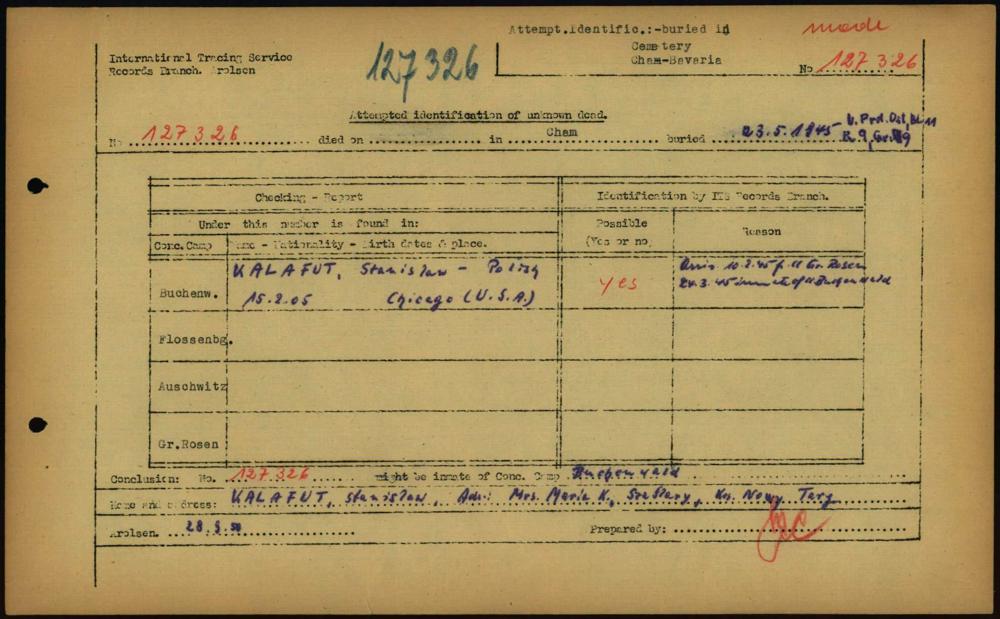 Attempt.Identific.:-buried in
made
Cemetery
Cham-Bavaria
International Tracing Service
Records Branch. Arolsen
127326
No 127326
Attempted identification of unknown dead.
No 127326 died on in Cham buried 23.5.1945
R. 9, Gr.
Checking - Report
Identification by ITS Records Branch.
Under this number is found in:
Possible
(Yes or no)
Reason
Conc.Camp
Name - Nationality - Birth dates & place.
KALAFUT, Stanislaw - Polish
10.2.45 f. Gr. Rosen
Buchenw.
15.2.05 Chicago (U.S.A.)
yes
24.3.45 inmate of Buchenwald
Flossenbg.
Auschwitz
Gr.Rosen
Conclusion: No. 127326 might be inmate of Conc. Camp Buchenwald
Name and address: KALAFUT, Stanislaw, Adr.: Mrs. Maria K., Kr. Nowy Targ
Arolsen. 28.9.50
Prepared by: